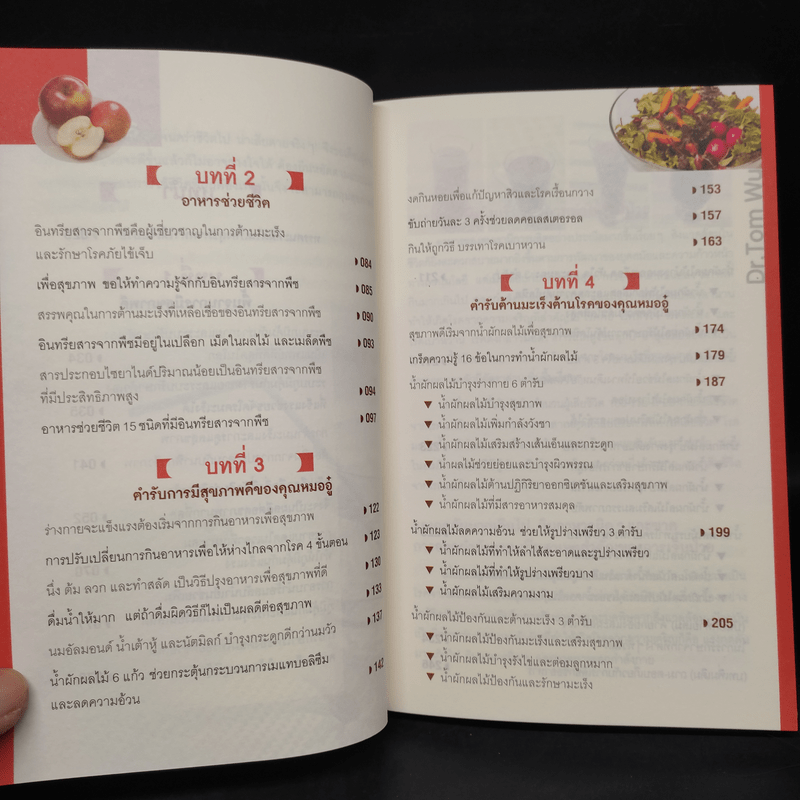 บทที่ 2
อาหารช่วยชีวิต
อินทรียสารจากพืชคือผู้เชี่ยวชาญในการต้านมะเร็ง
และรักษาโรคภัยไข้เจ็บ 084
เพื่อสุขภาพ ขอให้ทำความรู้จักกับอินทรียสารจากพืช 085
สรรพคุณในการต้านมะเร็งที่เหลือเชื่อของอินทรียสารจากพืช 090
อินทรียสารจากพืชมีอยู่ในเปลือก เม็ดในผลไม้ และเมล็ดพืช 093
สารประกอบไซยาไนด์ปริมาณน้อยเป็นอินทรียสารจากพืช
ที่มีประสิทธิภาพสูง 094
อาหารช่วยชีวิต 15 ชนิดที่มีอินทรียสารจากพืช 097
บทที่ 3
ตำรับการมีสุขภาพดีของคุณหมออู๋
ร่างกายจะแข็งแรงต้องเริ่มจากการกินอาหารเพื่อสุขภาพ 122
การปรับเปลี่ยนการกินอาหารเพื่อให้ห่างไกลจากโรค 4 ขั้นตอน 123
นึ่ง ต้ม ลวก และทำสลัด เป็นวิธีปรุงอาหารเพื่อสุขภาพที่ดี 130
ดื่มน้ำให้มาก แต่ถ้าดื่มผิดวิธีก็ไม่เป็นผลดีต่อสุขภาพ 133
นมอัลมอนด์ น้ำเต้าหู้ และนัตมิลก์ บำรุงกระดูกดีกว่านมวัว 137
น้ำผักผลไม้ 6 แก้ว ช่วยกระตุ้นกระบวนการเมแทบอลิซึม 142
และลดความอ้วน
Dr.Tom Wu
งดกินหอยเพื่อแก้ปัญหาสิวและโรคเรื้อนกวาง 153
ขับถ่ายวันละ 3 ครั้งช่วยลดคอเลสเตอรอล 157
กินให้ถูกวิธี บรรเทาโรคเบาหวาน 163
บทที่ 4
ตำรับต้านมะเร็งต้านโรคของคุณหมออู๋
สุขภาพดีเริ่มจากน้ำผักผลไม้เพื่อสุขภาพ 174
เกร็ดความรู้ 16 ข้อในการทำน้ำผักผลไม้ 179
น้ำผักผลไม้บำรุงร่างกาย 6 ตำรับ 187
▼ น้ำผักผลไม้บำรุงสุขภาพ
▼ น้ำผักผลไม้เพิ่มกำลังวังชา
▼ น้ำผักผลไม้เสริมสร้างเส้นเอ็นและกระดูก
▼ น้ำผลไม้ช่วยย่อยและบำรุงผิวพรรณ
▼ น้ำผักผลไม้ต้านปฏิกิริยาออกซิเดชันและเสริมสุขภาพ
▼ น้ำผักผลไม้ที่มีสารอาหารสมดุล
น้ำผักผลไม้ลดความอ้วน ช่วยให้รูปร่างเพรียว 3 ตำรับ 199
▼ น้ำผักผลไม้ที่ทำให้ลำไส้สะอาดและรูปร่างเพรียว
▼ น้ำผักผลไม้ที่ทำให้รูปร่างเพรียวบาง
▼ น้ำผักผลไม้เสริมความงาม
น้ำผักผลไม้ป้องกันและต้านมะเร็ง 3 ตำรับ 205
▼ น้ำผักผลไม้ป้องกันมะเร็งและเสริมสุขภาพ
▼ น้ำผักผลไม้บำรุงรังไข่และต่อมลูกหมาก
▼ น้ำผักผลไม้ป้องกันและรักษามะเร็ง